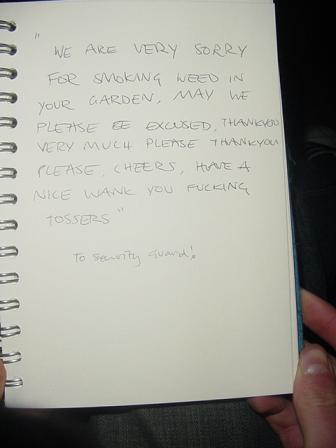 "
WE ARE VERY SORRY
FOR SMOKING WEED IN
YOUR GARDEN, MAY WE
PLEASE BE EXCUSED, THANKYOU
VERY MUCH PLEASE THANKYOU
PLEASE, CHEERS, HAVE A
NICE WANK YOU FUCKING
TOSSERS"
To security guard!